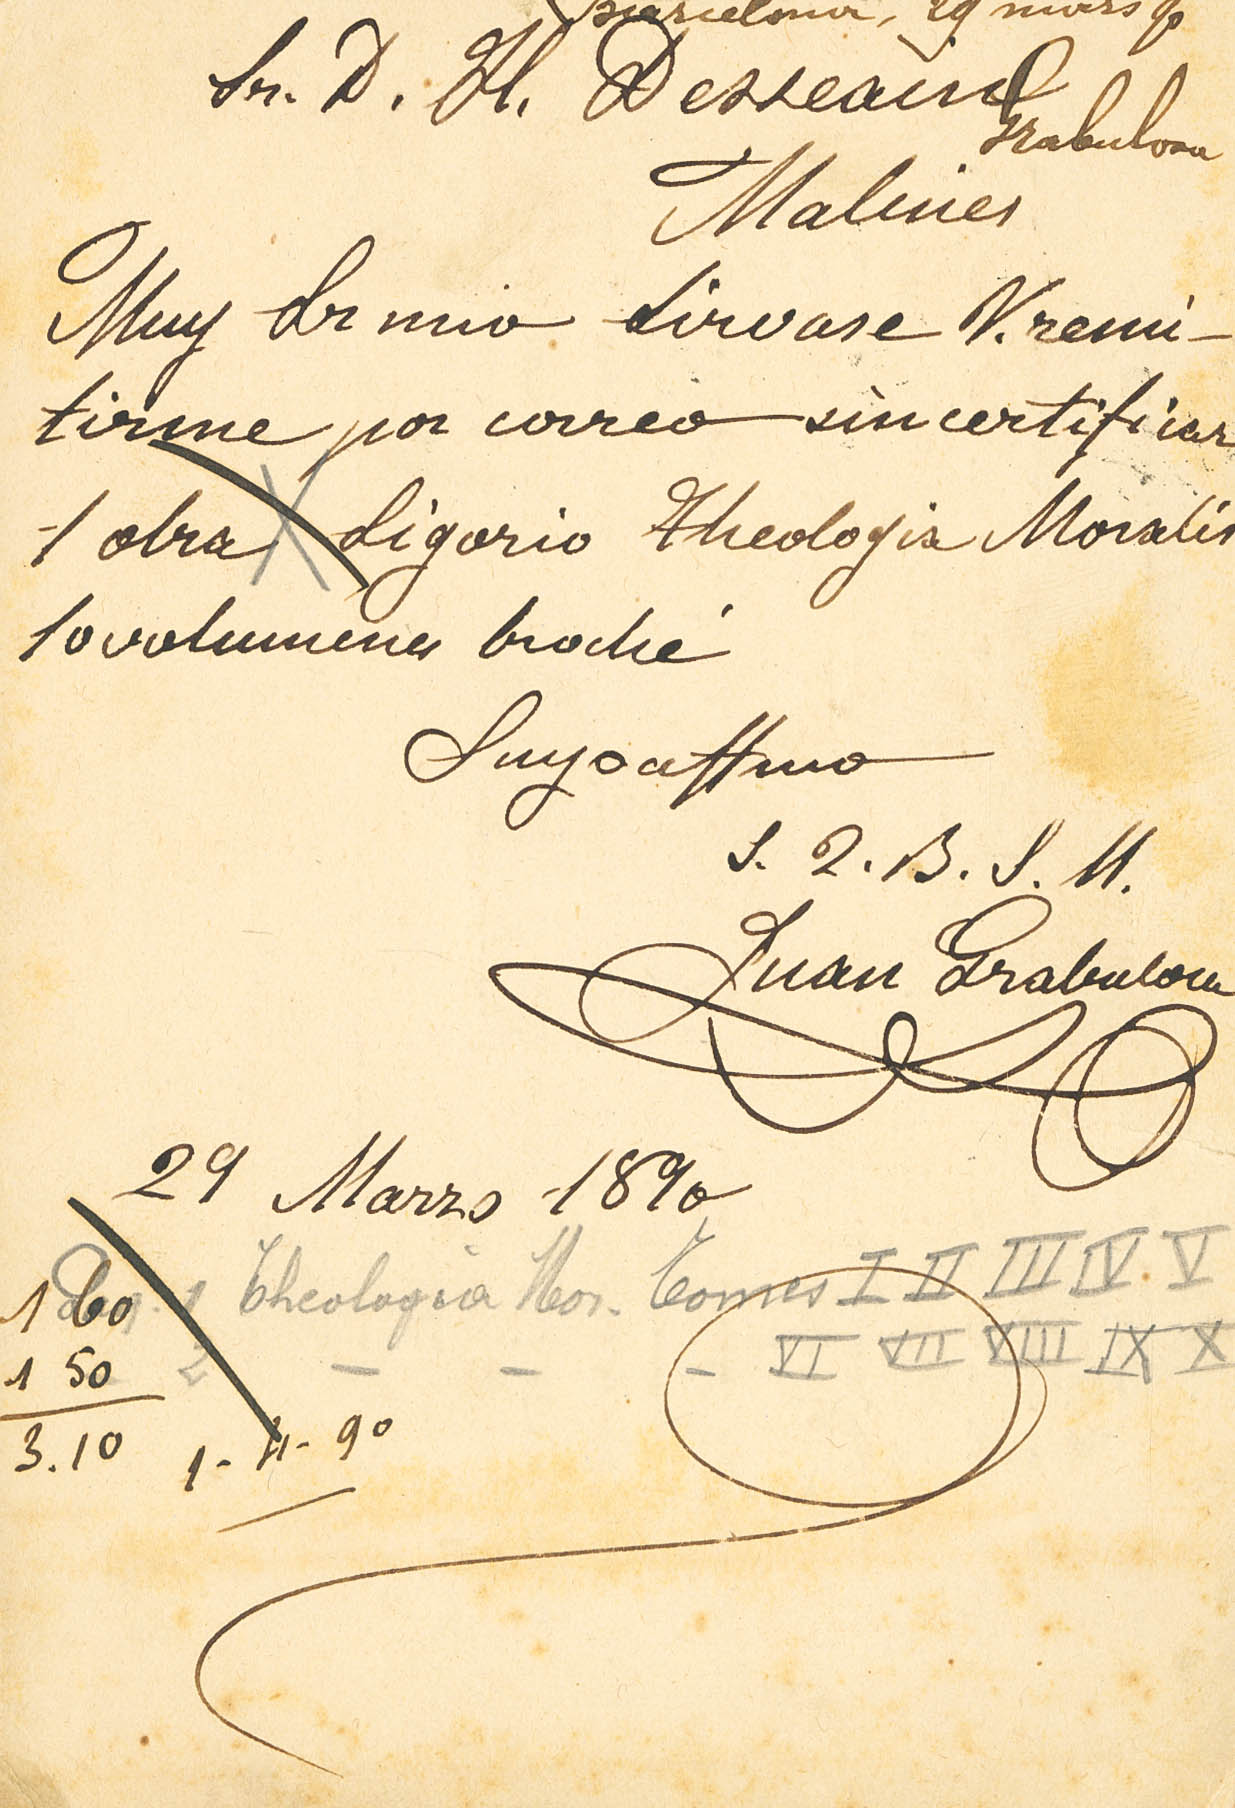 Barcelona, 29 mars 90
Sr. D. H. Dessain
Grabulosa
Malines
Muy Sr mio Sirvase V. remi-
tirme por correo sin certificar
1 obra Ligorio Theologia Moralis
10 volumenes broché
Suyo affmo
S. Q. B. S. M.
Juan Grabulosa
29 Marzo 1890
1 Theologia Mor. Tomes I II III IV V
1 60
2 - - - VI VII VIII IX X
1 50
3.10
1-4-90